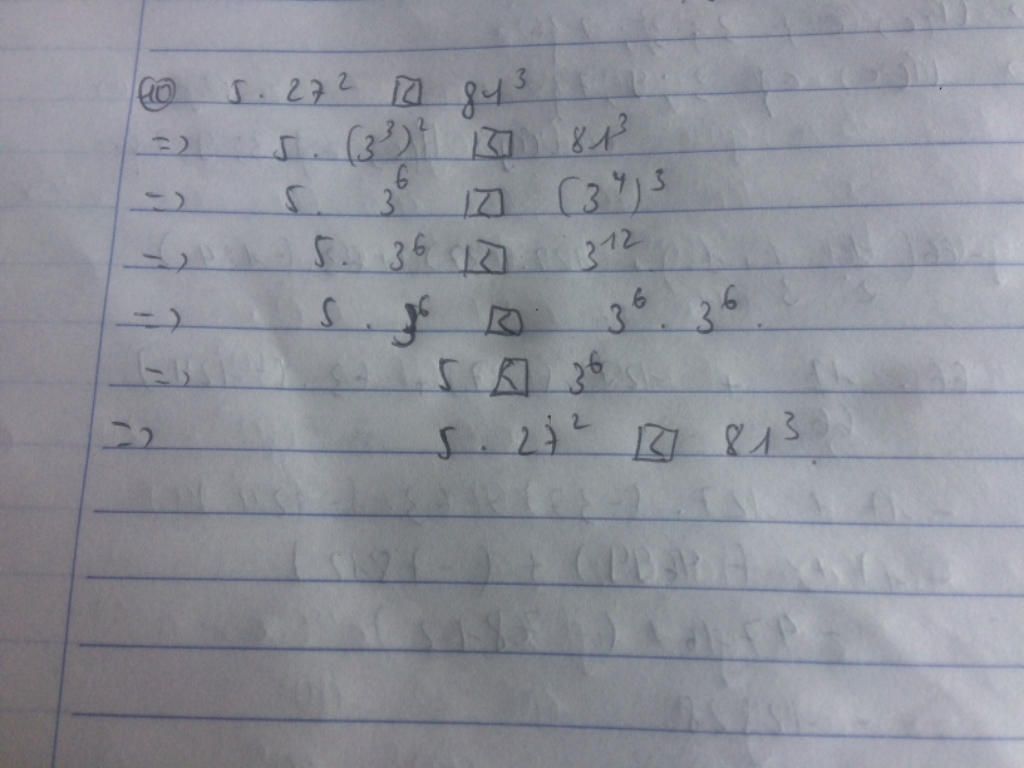 10 5 . 27² < 81³
=> 5 . (3³)² < 81³
=> 5 . 3⁶ < (3⁴)³
=> 5 . 3⁶ < 3¹²
=> 5 . 3⁶ < 3⁶ . 3⁶ .
=> 5 < 3⁶
=> 5 . 27² < 81³ .